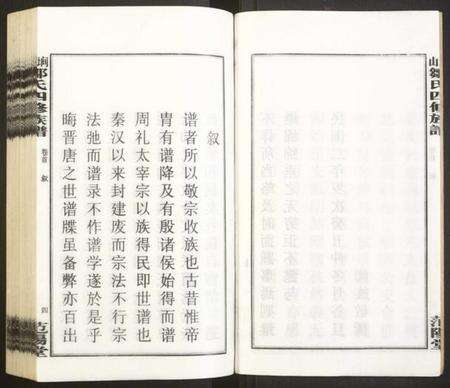 叙
谱者所以敬宗收族也古昔惟帝
胄有谱降及有殷诸侯始得而谱
周礼太宰宗以族得民即世谱也
秦汉以来封建废而宗法不行宗
法弛而谱录不作谱学遂於是乎
晦晋唐之世谱牒虽备弊亦百出
氏四修族谱
卷首
叙
四
范阳堂
山邹氏四修族谱
范阳堂